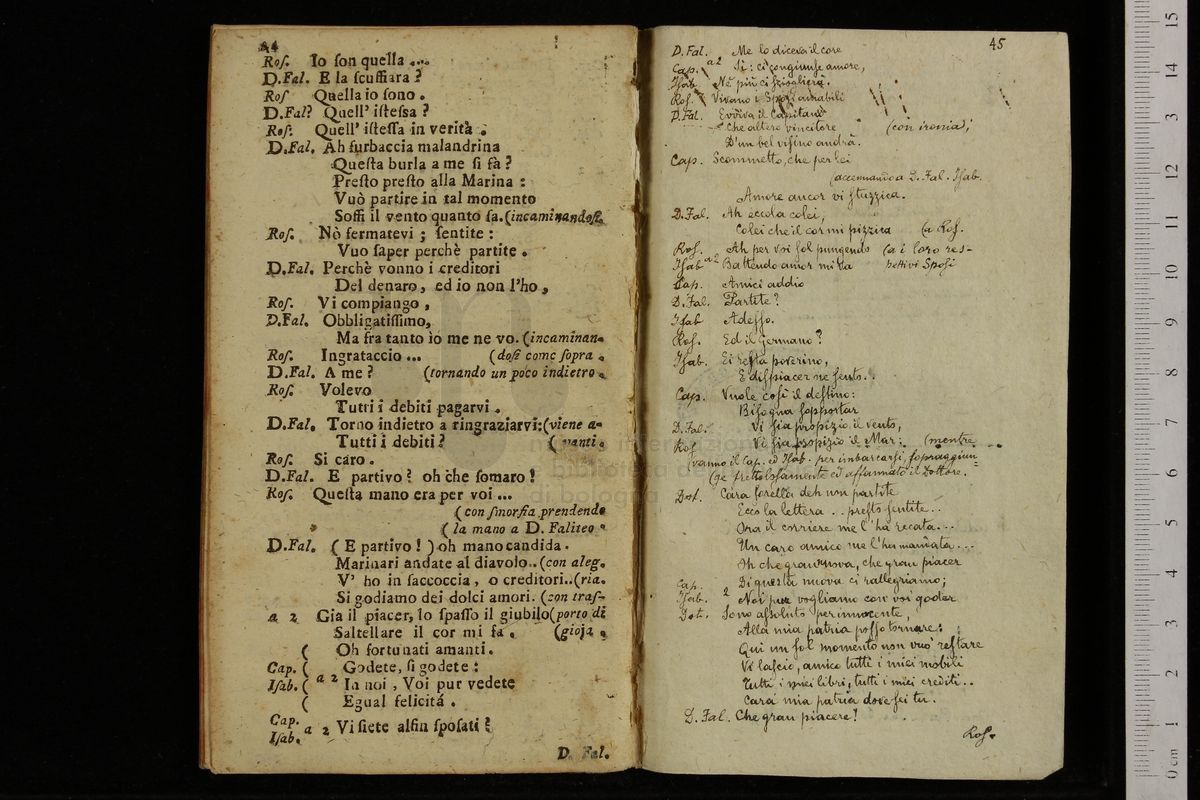 44
Roſ. Io ſon quella ....
D.Fal. E la ſcuffiara ?
Roſ Quella io ſono .
D.Fal? Quell' iſteſsa ?
Roſ. Quell' iſteſſa in verità .
D.Fal. Ah furbaccia malandrina
Queſta burla a me ſi fà ?
Preſto preſto alla Marina :
Vuò partire in tal momento
Soffi il vento quanto ſa. (incaminandoſi.
Roſ. Nò fermatevi ; ſentite :
Vuo ſaper perchè partite .
D.Fal. Perchè vonno i creditori
Del denaro, ed io non l'ho ,
Roſ. Vi compiango ,
D.Fal. Obbligatiſſimo,
Ma fra tanto io me ne vo. (incaminan-
Roſ. Ingrataccio ... (doſi come ſopra .
D.Fal. A me ? (tornando un poco indietro .
Roſ. Volevo
Tutti i debiti pagarvi .
D.Fal. Torno indietro a ringraziarvi: (viene a-
Tutti i debiti ? ( vanti .
Roſ. Si caro .
D.Fal. E partivo ? oh che ſomaro !
Roſ. Queſta mano era per voi ...
( con ſmorfia prendendo
( la mano a D. Faliteo .
D.Fal. ( E partivo ! ) oh mano candida .
Marinari andate al diavolo.. (con aleg.
V' ho in ſaccoccia , o creditori.. (ria.
Si godiamo dei dolci amori. (con traſ-
a 2 Gia il piacer, lo ſpaſſo il giubilo (porto di
Saltellare il cor mi fa . (gioja .
( Oh fortunati amanti.
Cap. ( Godete, ſi godete :
Iſab. ( a 2 In noi , Voi pur vedete
( Egual felicitá .
Cap.
Iſab. a 2 Vi ſiete alfin ſpoſati ?
D. Fal.
45
D. Fal. Me lo diceva il core
Cap. a 2 Sì : ci congiunſe amore,
Iſab Nè più ci ſcioglierà.
Roſ. Vivano i Spoſi amabili
D. Fal. Evviva il Capitano
Che altero vincitore (con ironia);
D'un bel viſino andrà.
Cap. Scommetto, che per lei
(accennando a D. Fal. Iſab.
Amore ancor vi ſtuzzica.
D. Fal. Ah eccola colei,
Colei che il cor mi pizzica (a Roſ.
Roſ. Ah per voi ſol pungendo (a i loro res-
Iſab a 2 Battendo amor mi va pettivi Spoſi
Cap. Amici addio
D. Fal. Partite ?
Iſab Adeſſo.
Roſ. Ed il Germano ?
Iſab. Ei reſta poverino,
E diſpiacer ne ſento..
Cap. Vuole coſì il deſtino:
Biſogna ſopportar
D. Fal. Vi ſia propizio il vento,
Roſ Vi ſia propizio il Mar: (mentre
(vanno il Cap. ed Iſab. per imbarcarſi, ſopraggiun=
(ge frettoloſamente ed affannato il Dottore.
Dot. Cara ſorella deh non partite
Ecco la lettera .. preſto ſentite..
Ora il corriere me l'ha recata...
Un caro amico me l'ha mandata...
Oh che gran nuova, che gran piacer
Cap. Di queſta nuova ci rallegriamo;
Iſab. 2 Noi pur vogliamo con voi goder
Dot. Sono aſſoluto per innocente,
Alla mia patria poſſo tornare:
Qui un ſol momento non vuò reſtare
Vi laſcio, amico tutti i miei mobili
Tutti i miei libri, tutti i miei crediti..
Cara mia patria dove ſei tu.
D. Fal. Che gran piacere!
Roſ.